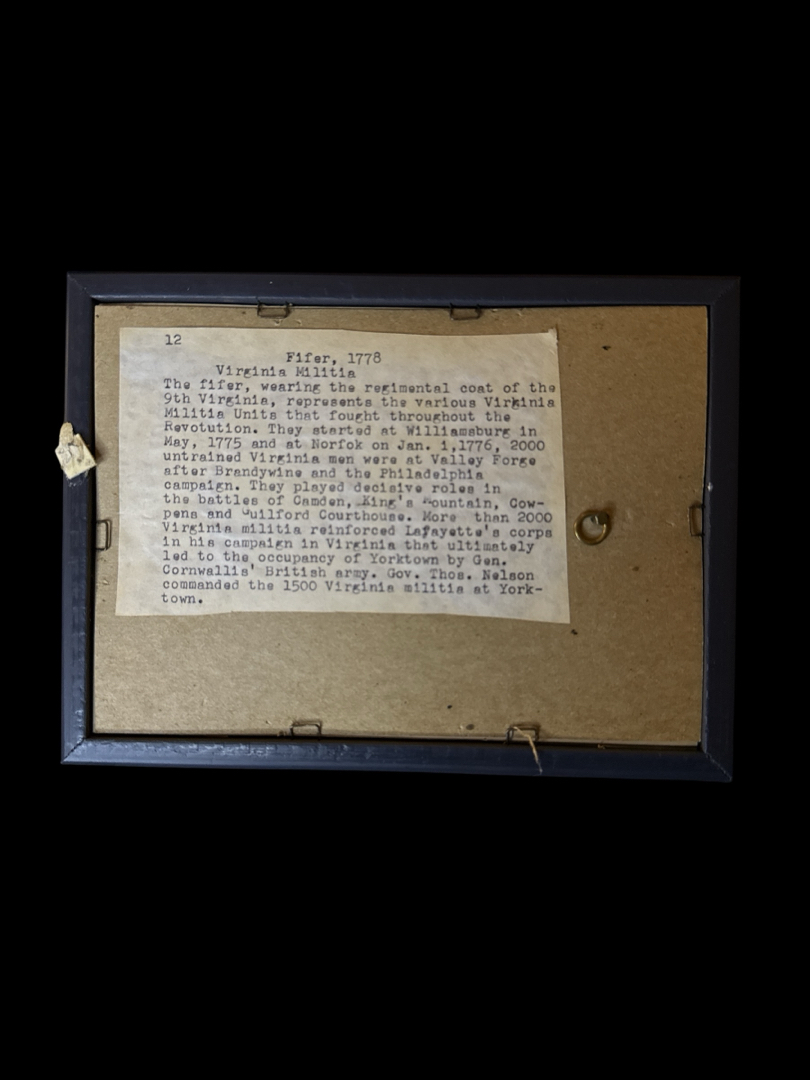 12
Fifer, 1778
Virginia Militia
The fifer, wearing the regimental coat of the
9th Virginia, represents the various Virginia
Militia Units that fought throughout the
Revotution. They started at Williamsburg in
May, 1775 and at Norfok on Jan. 1,1776, 2000
untrained Virginia men were at Valley Forge
after Brandywine and the Philadelphia
campaign. They played decisive roles in
the battles of Camden, King's Mountain, Cow-
pens and Guilford Courthouse. More than 2000
Virginia militia reinforced Lafayette's corps
in his campaign in Virginia that ultimately
led to the occupancy of Yorktown by Gen.
Cornwallis' British army. Gov. Thos. Nelson
commanded the 1500 Virginia militia at York-
town.